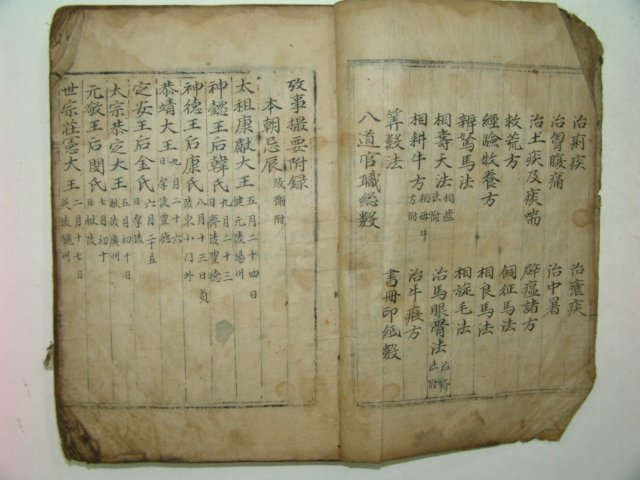 治痢疾 治瘧疾
治胷腹痛 治中暑
治土疾及痰喘 辟瘟諸方
救荒方 飼征馬法
經驗牧養方 相良馬法
辨駑馬法 相旋毛法
相壽夭法 治馬眼骨法
相耕牛方 相毋牛方附 治牛瘕方
筭數法 書冊印紙數
八道官職総數
攷事撮要附錄
本朝忌辰 陵𥘉附
太祖康獻大王 五月二十四日 健元陵楊州
神懿王后韓氏 九月二十三日 齊陵豊德
神德王后康氏 八月十三日 貞陵東小門外
恭靖大王 九月二十六日 厚陵豊德
定安王后金氏 六月二十五日 厚陵
太宗恭定大王 五月初十日 献陵廣州
元敬王后閔氏 七月初十日 献陵
世宗莊憲大王 二月十七日 英陵驪州